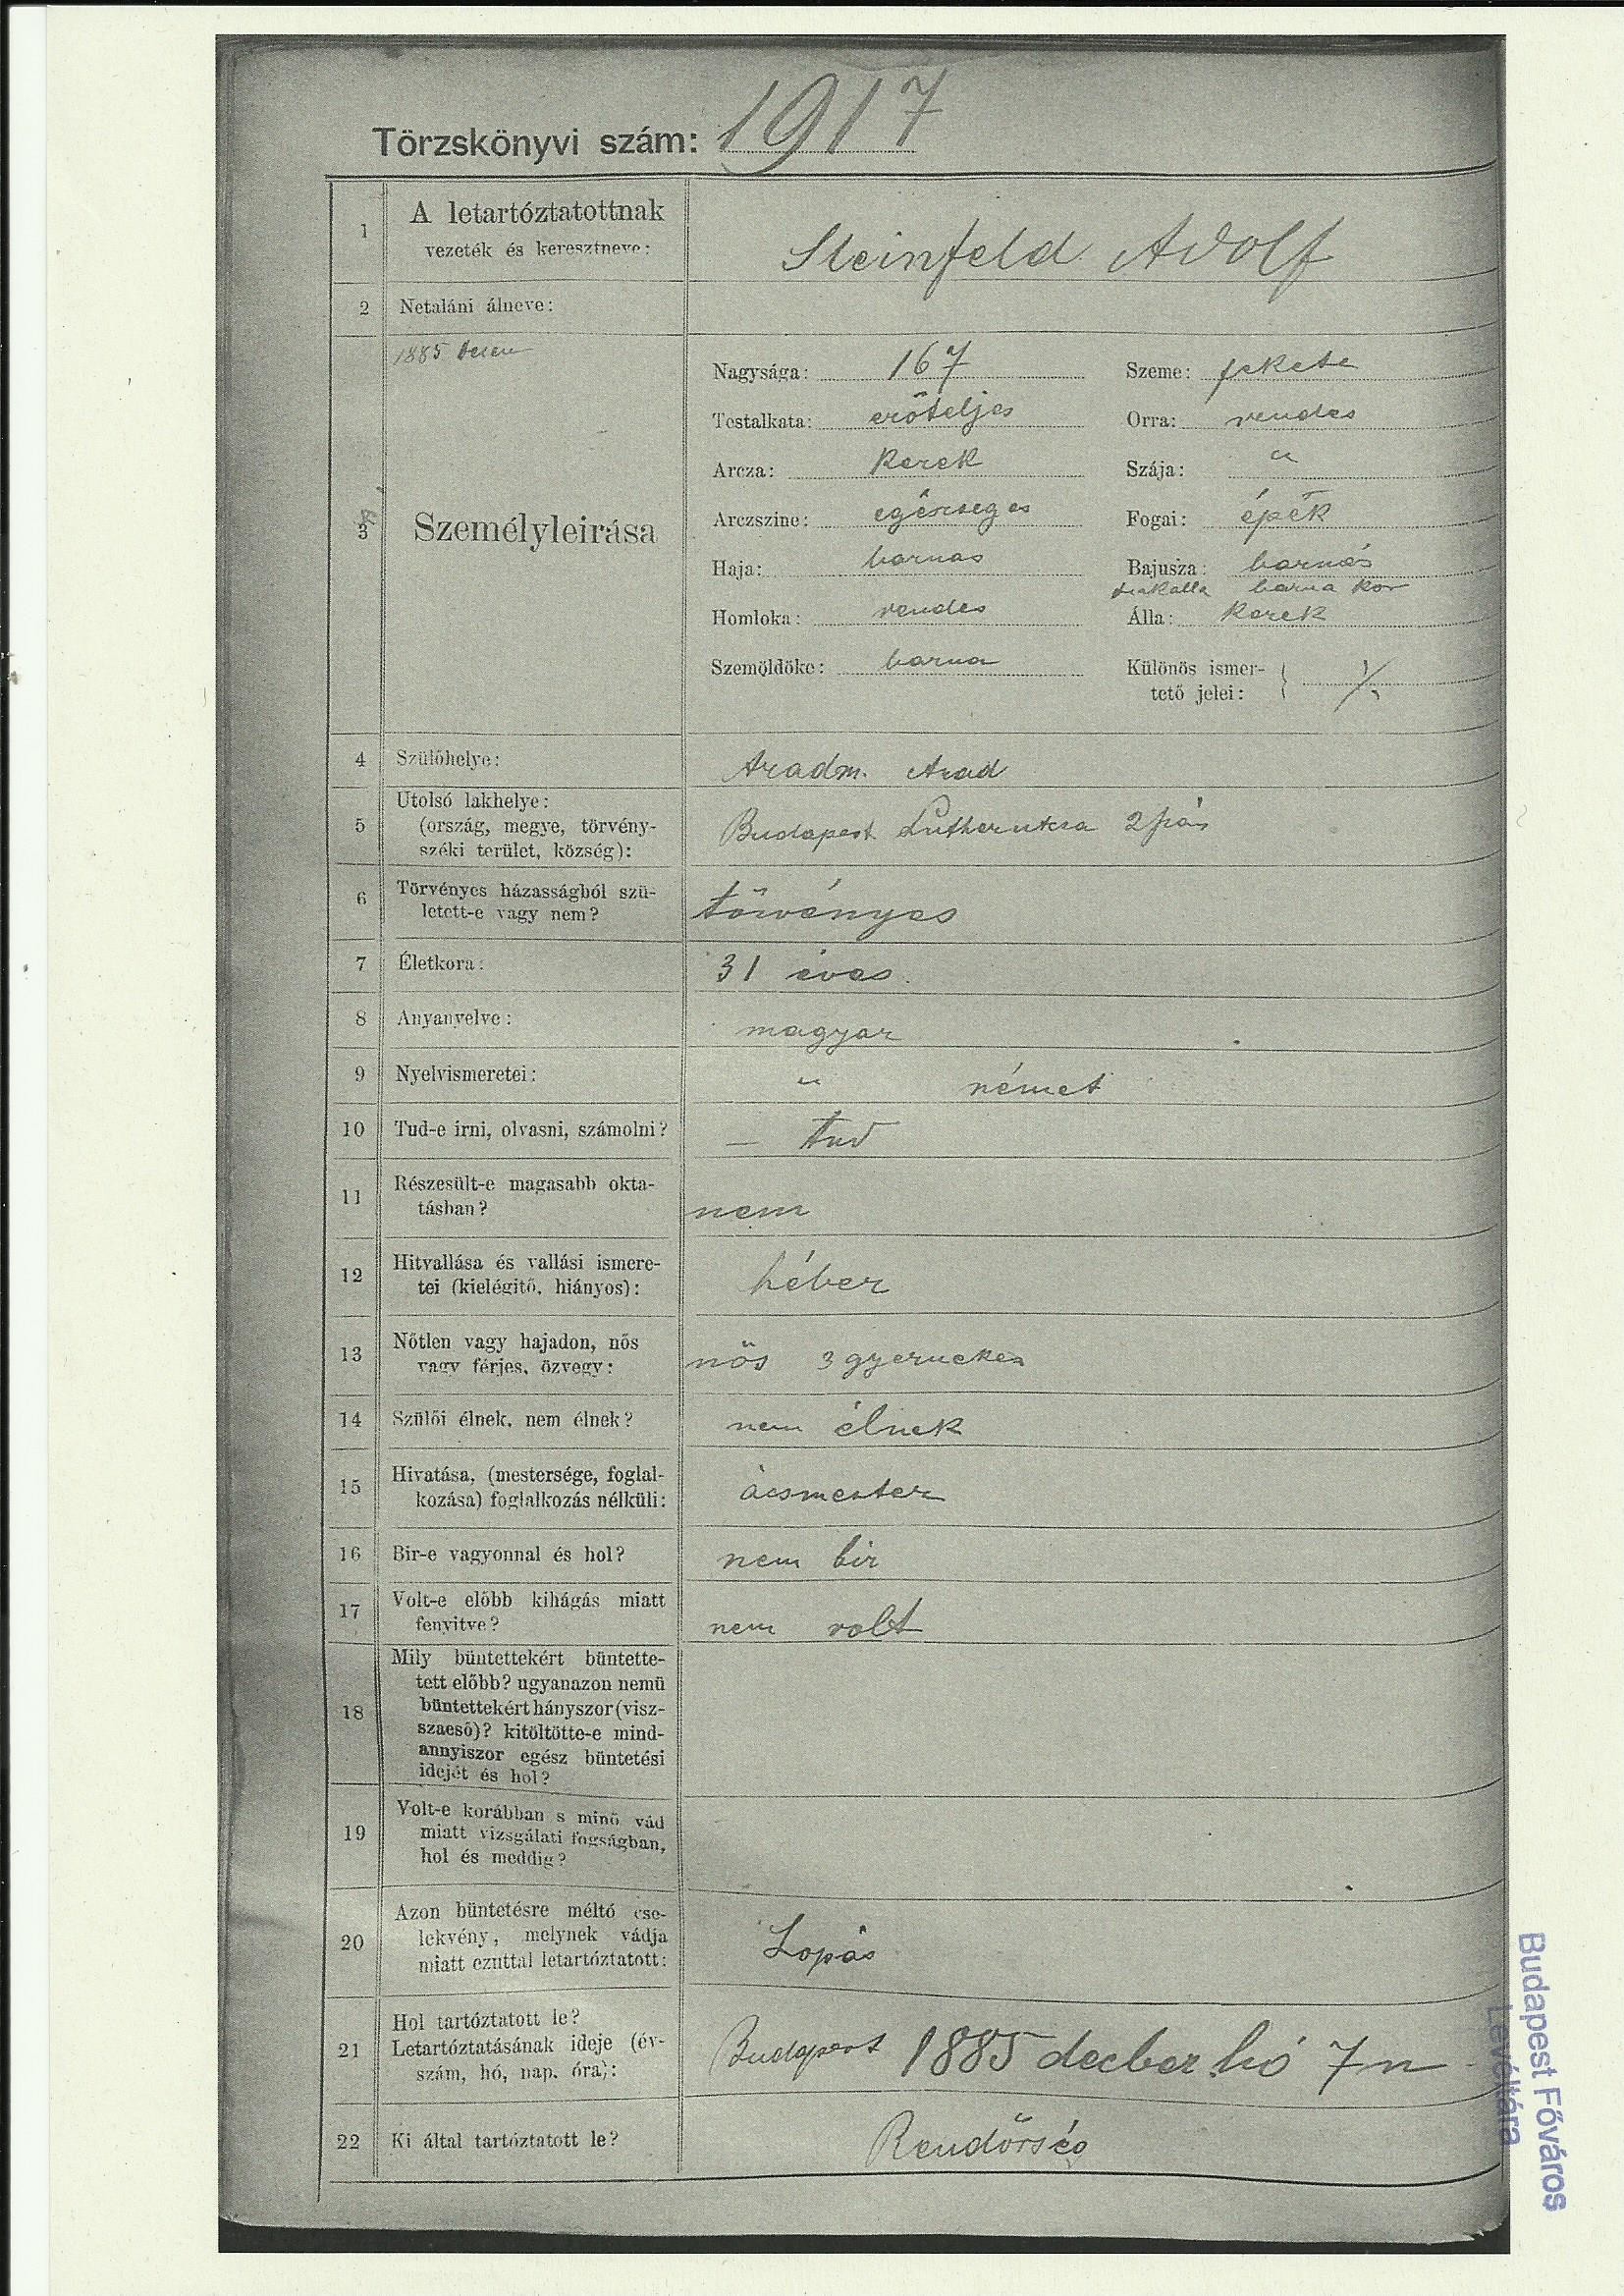 Törzskönyvi szám: 1917
1 A letartóztatottnak
vezeték és keresztneve:
Steinfeld Adolf
2 Netaláni álneve:
1885
3 Személyleirása
Nagysága: 167 Szeme: fekete
Testalkata: erőteljes Orra: rendes
Arcza: Kerek Szája: "
Arczszine: egésséges Fogai: épek
Haja: barnas Bajusza: barnás
barna
Homloka: rendes Álla: Kerek
Szemöldöke: barna Különös ismer-
tető jelei: ./.
4 Szülőhelye: Aradm. Arad
5 Utolsó lakhelye:
(ország, megye, törvény-
széki terület, község):
Budapest Luther utcza 2
6 Törvényes házasságból szü-
letett-e vagy nem?
törvényes
7 Életkora: 31 éves.
8 Anyanyelve: magyar
9 Nyelvismeretei: " német
10 Tud-e irni, olvasni, számolni? — tud
11 Részesült-e magasabb okta-
tásban?
nem
12 Hitvallása és vallási ismere-
tei (kielégitő, hiányos):
héber
13 Nőtlen vagy hajadon, nős
vagy férjes, özvegy:
nős 3 gyermekes
14 Szülői élnek, nem élnek? nem élnek
15 Hivatása, (mestersége, foglal-
kozása) foglalkozás nélküli:
ácsmester
16 Bir-e vagyonnal és hol? nem bir
17 Volt-e előbb kihágás miatt
fenyitve?
nem volt
18 Mily büntettekért büntette-
tett előbb? ugyanazon nemü
büntettekért hányszor (visz-
szaeső)? kitöltötte-e mind-
annyiszor egész büntetési
idejét és hol?
19 Volt-e korábban s minő vád
miatt vizsgálati fogságban,
hol és meddig?
20 Azon büntetésre méltó cse-
lekvény, melynek vádja
miatt ezuttal letartóztatott:
Lopás
21 Hol tartóztatott le?
Letartóztatásának ideje (év-
szám, hó, nap, óra):
Budapest 1885 decber hó 7n
22 Ki által tartóztatott le? Rendőrség
Budapest Főváros
Levéltára